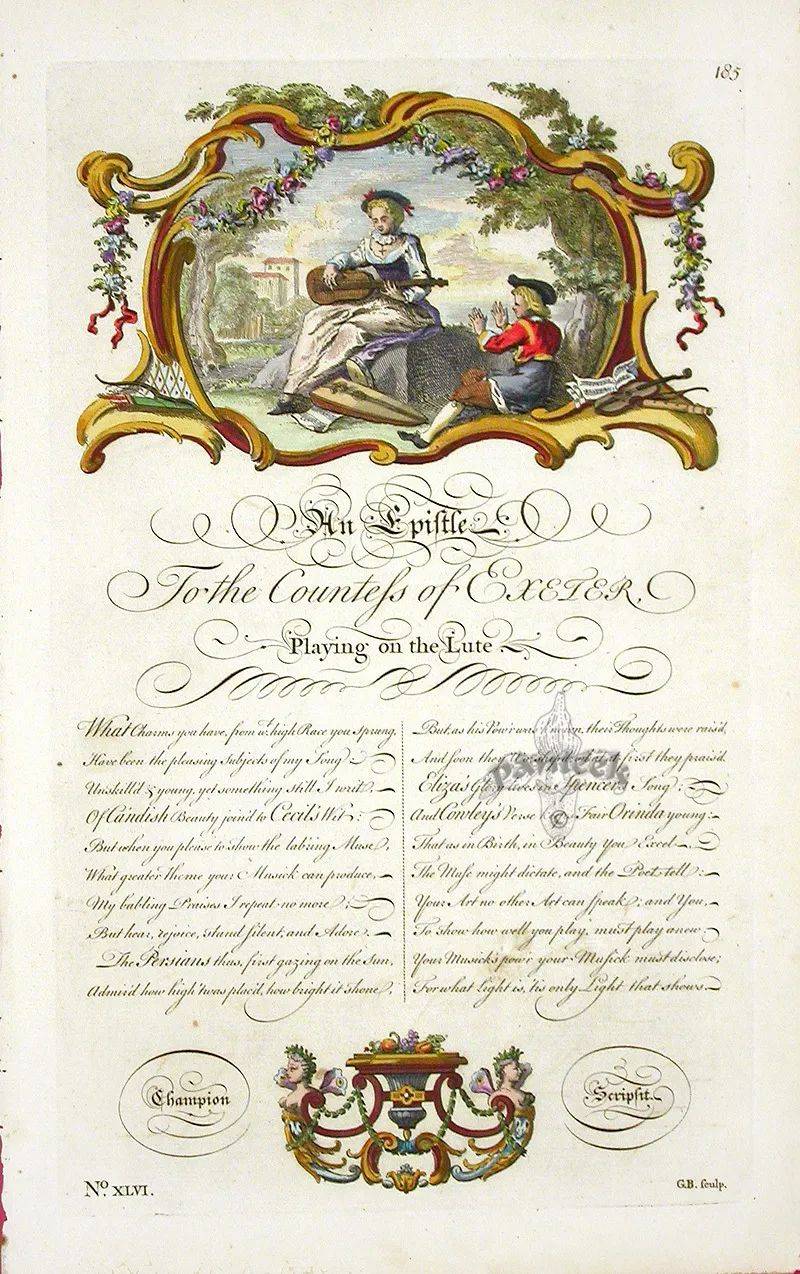 185
An Epistle
To the Countess of EXETER,
Playing on the Lute.
What Charms you have, from wt. high Race you Sprung,
Have been the pleasing Subjects of my Song:
Unskill'd & young, yet something still I writ,
Of Candish Beauty join'd to Cecil's Wit:
But when you please to show the lab'ring Muse,
What greater Theme your Musick can produce,
My babling Praises I repeat no more;
But hear, rejoice, stand silent, and Adore.
The Persians thus, first gazing on the Sun,
Admir'd how high 'twas plac'd, how bright it shone;
But, as his Pow'r was known, their Thoughts were rais'd,
And soon they Worship'd, what at first they prais'd.
Eliza's Glory lives in Spencer's Song;
And Cowley's Verse Fair Orinda young:
That as in Birth, in Beauty You Excel,
The Muse might dictate, and the Poet tell:
Your Art no other Art can speak; and You,
To show how well you play, must play anew.
Your Musick's pow'r your Musick must disclose;
For what Light is, 'tis only Light that shows.
Champion
Scripsit.
No. XLVI.
G.B. sculp.
panteek
©